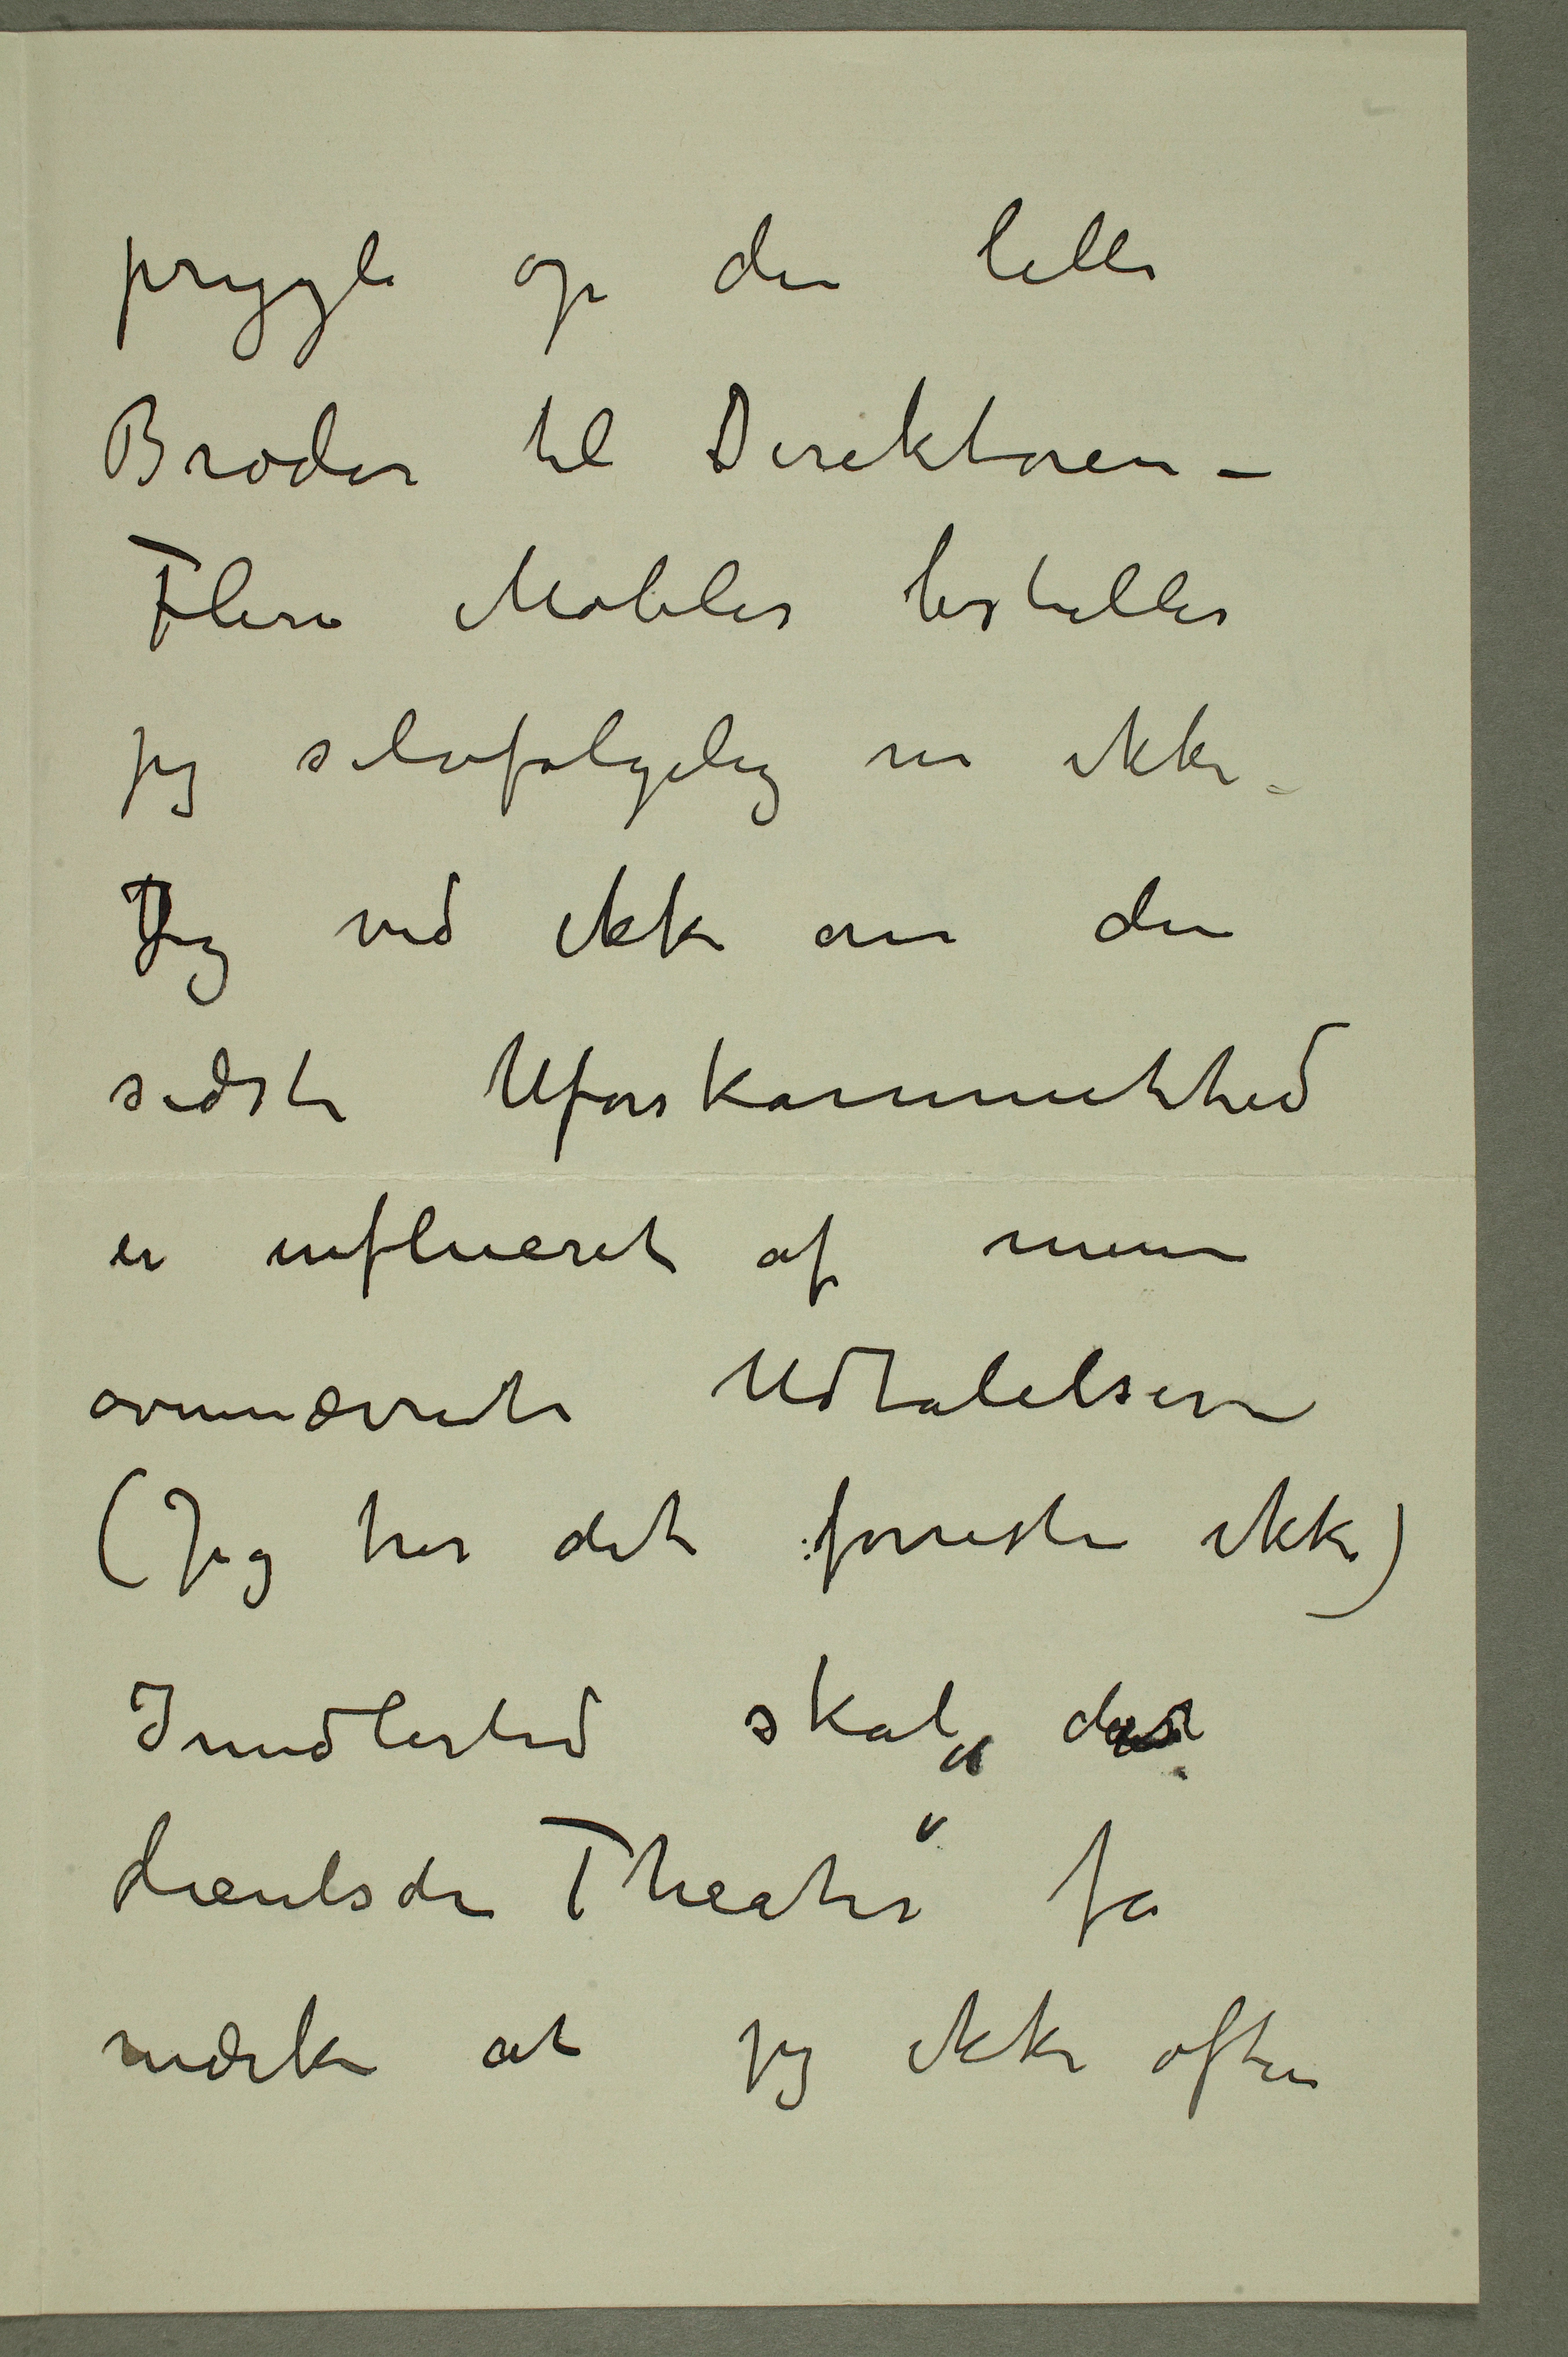 prygle op den lille
Broder til Direktøren –
Flere Møbler bestiller
jeg selvfølgelig nu ikke –
Jeg ved ikke om den
sidste Uforskammethed
er influeret af mine
ovennævnte Udtalelser
(Jeg tror det forresten ikke)
Imidlertid skal „das
deutsche Theater“ få
mærke at jeg ikke oftere